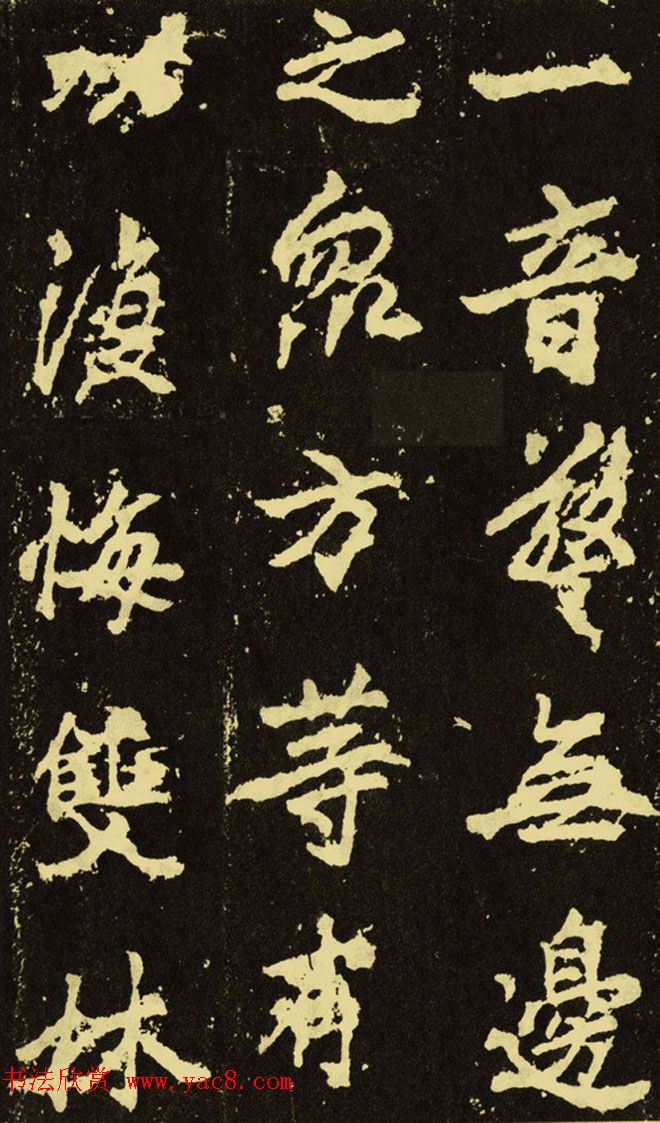 一音無邊
之衆方等有
悔雙林
书法欣赏 www.yac8.com